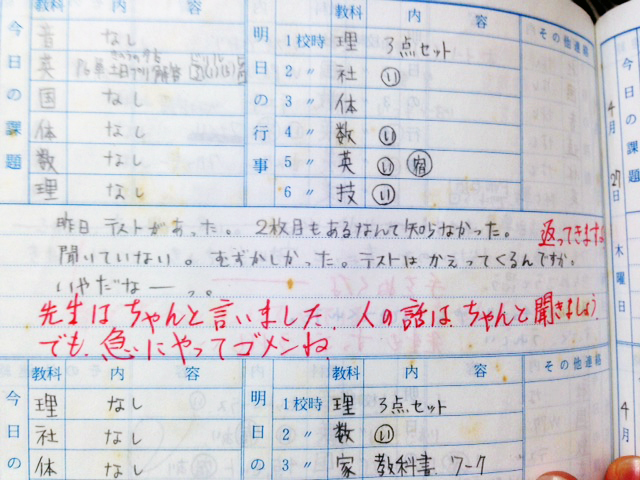 教科 内 容 教科 内 容 その他連絡
今日の課題
明日の行事
音 なし
英
国 なし
体 なし
数 なし
理 なし
1校時 理 3点セット
2 〃 社 い
3 〃 体
4 〃 数 い
5 〃 英 い 宿
6 〃 技 い
昨日テストがあった。2枚目もあるなんて知らなかった。
聞いていない。むずかしかった。テストはかえってくるんですか。
いやだなー
返ってきます。
先生はちゃんと言いました。人の話はちゃんと聞きましょう
でも、急にやってゴメンね
教科 内 容 教科 内 容 その他連絡
今日の
明日の
理 なし
社 なし
体 なし
1校時 理 3点セット
2 〃 数 い
3 〃 家 教科書 ワーク
今日の課題
4月27日木曜日
4月